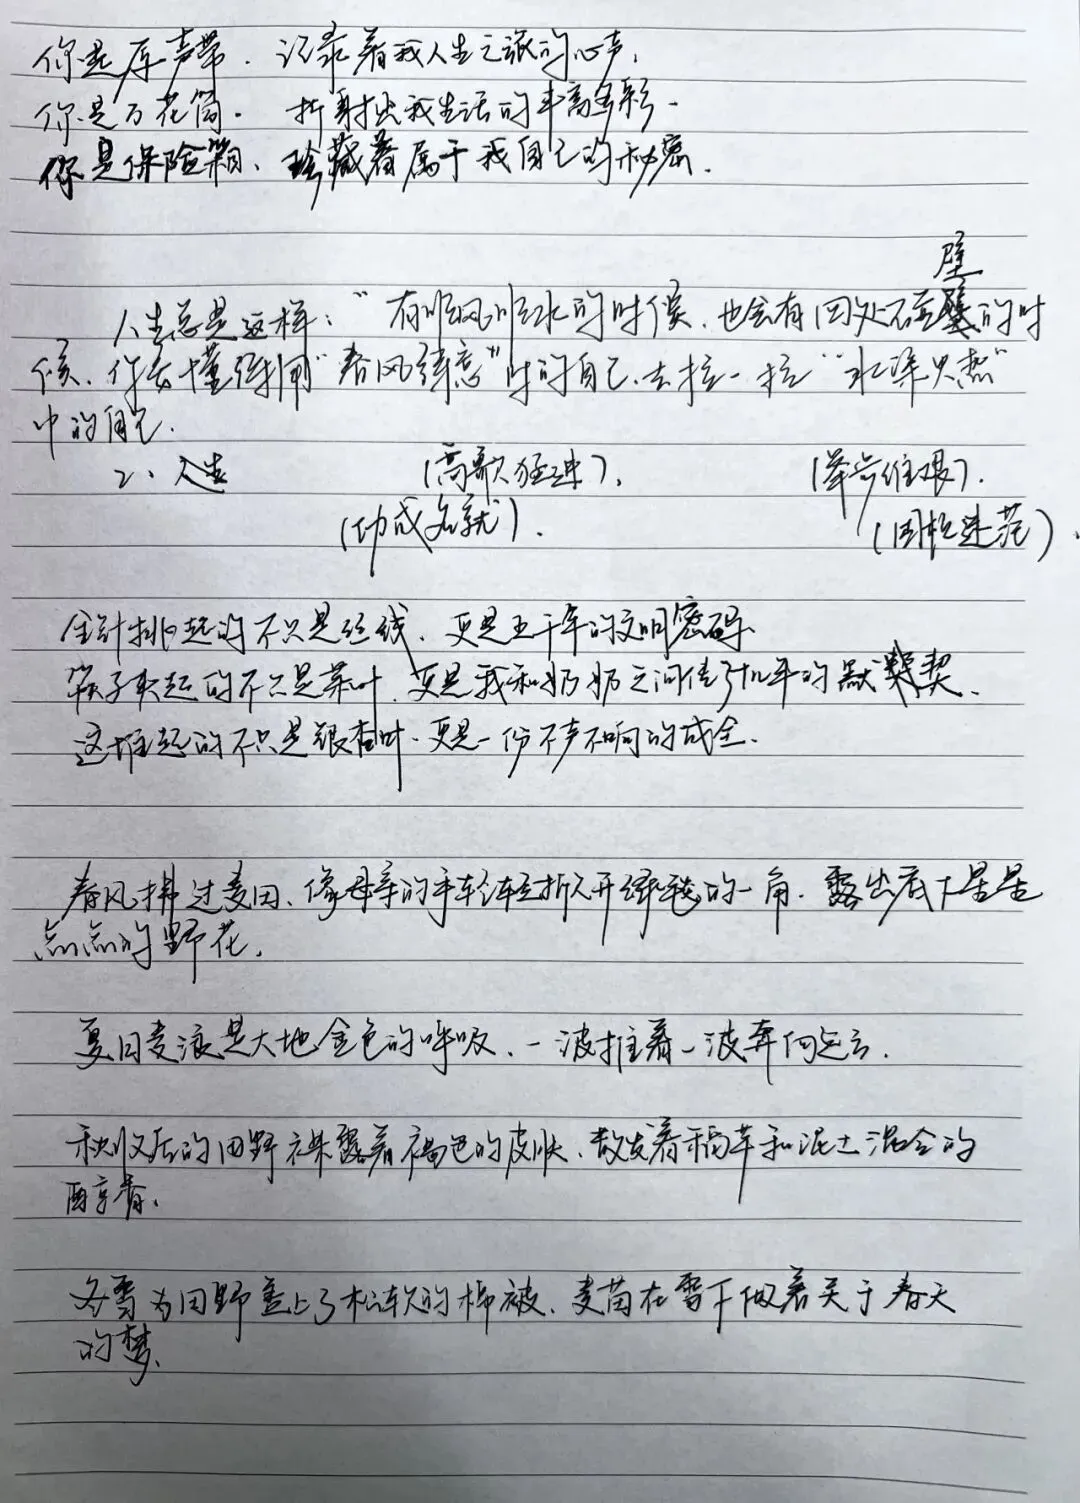 你是原声带，记录着我人生之旅的心声，
你是万花筒，折射出我生活的丰富多彩，
你是保险箱、珍藏着属于我自己的秘密.
壁
人生总是这样：“有顺风顺水的时候，也会有四处石壁的时
候、你要懂得利用“春风得意”时的自己、去拉一拉“水深火热”
中的自己.
2、人生 (高歌猛进)， (举步维艰)．
(功成名就)． (困惑迷茫)、
金针挑起的不只是经线、更是五千年的文明密码、
筷子夹起的不只是菜叶，更是我和奶奶之间传了几年的默契、
这堆起的不只是银杏叶、更是一份不声不响的成全.
春风拂过麦田、像母亲的手轻轻折开绿毯的一角、露出底下星星
点点的野花，
夏日麦浪是大地金色的呼吸、一波推着一波奔向远方，
秋收后的田野裸露着褐色的皮肤、散发着稻草和泥土混合的
醇香、
冬雪为田野盖上了松软的棉被、麦苗在雪下做着关于春天
的梦、